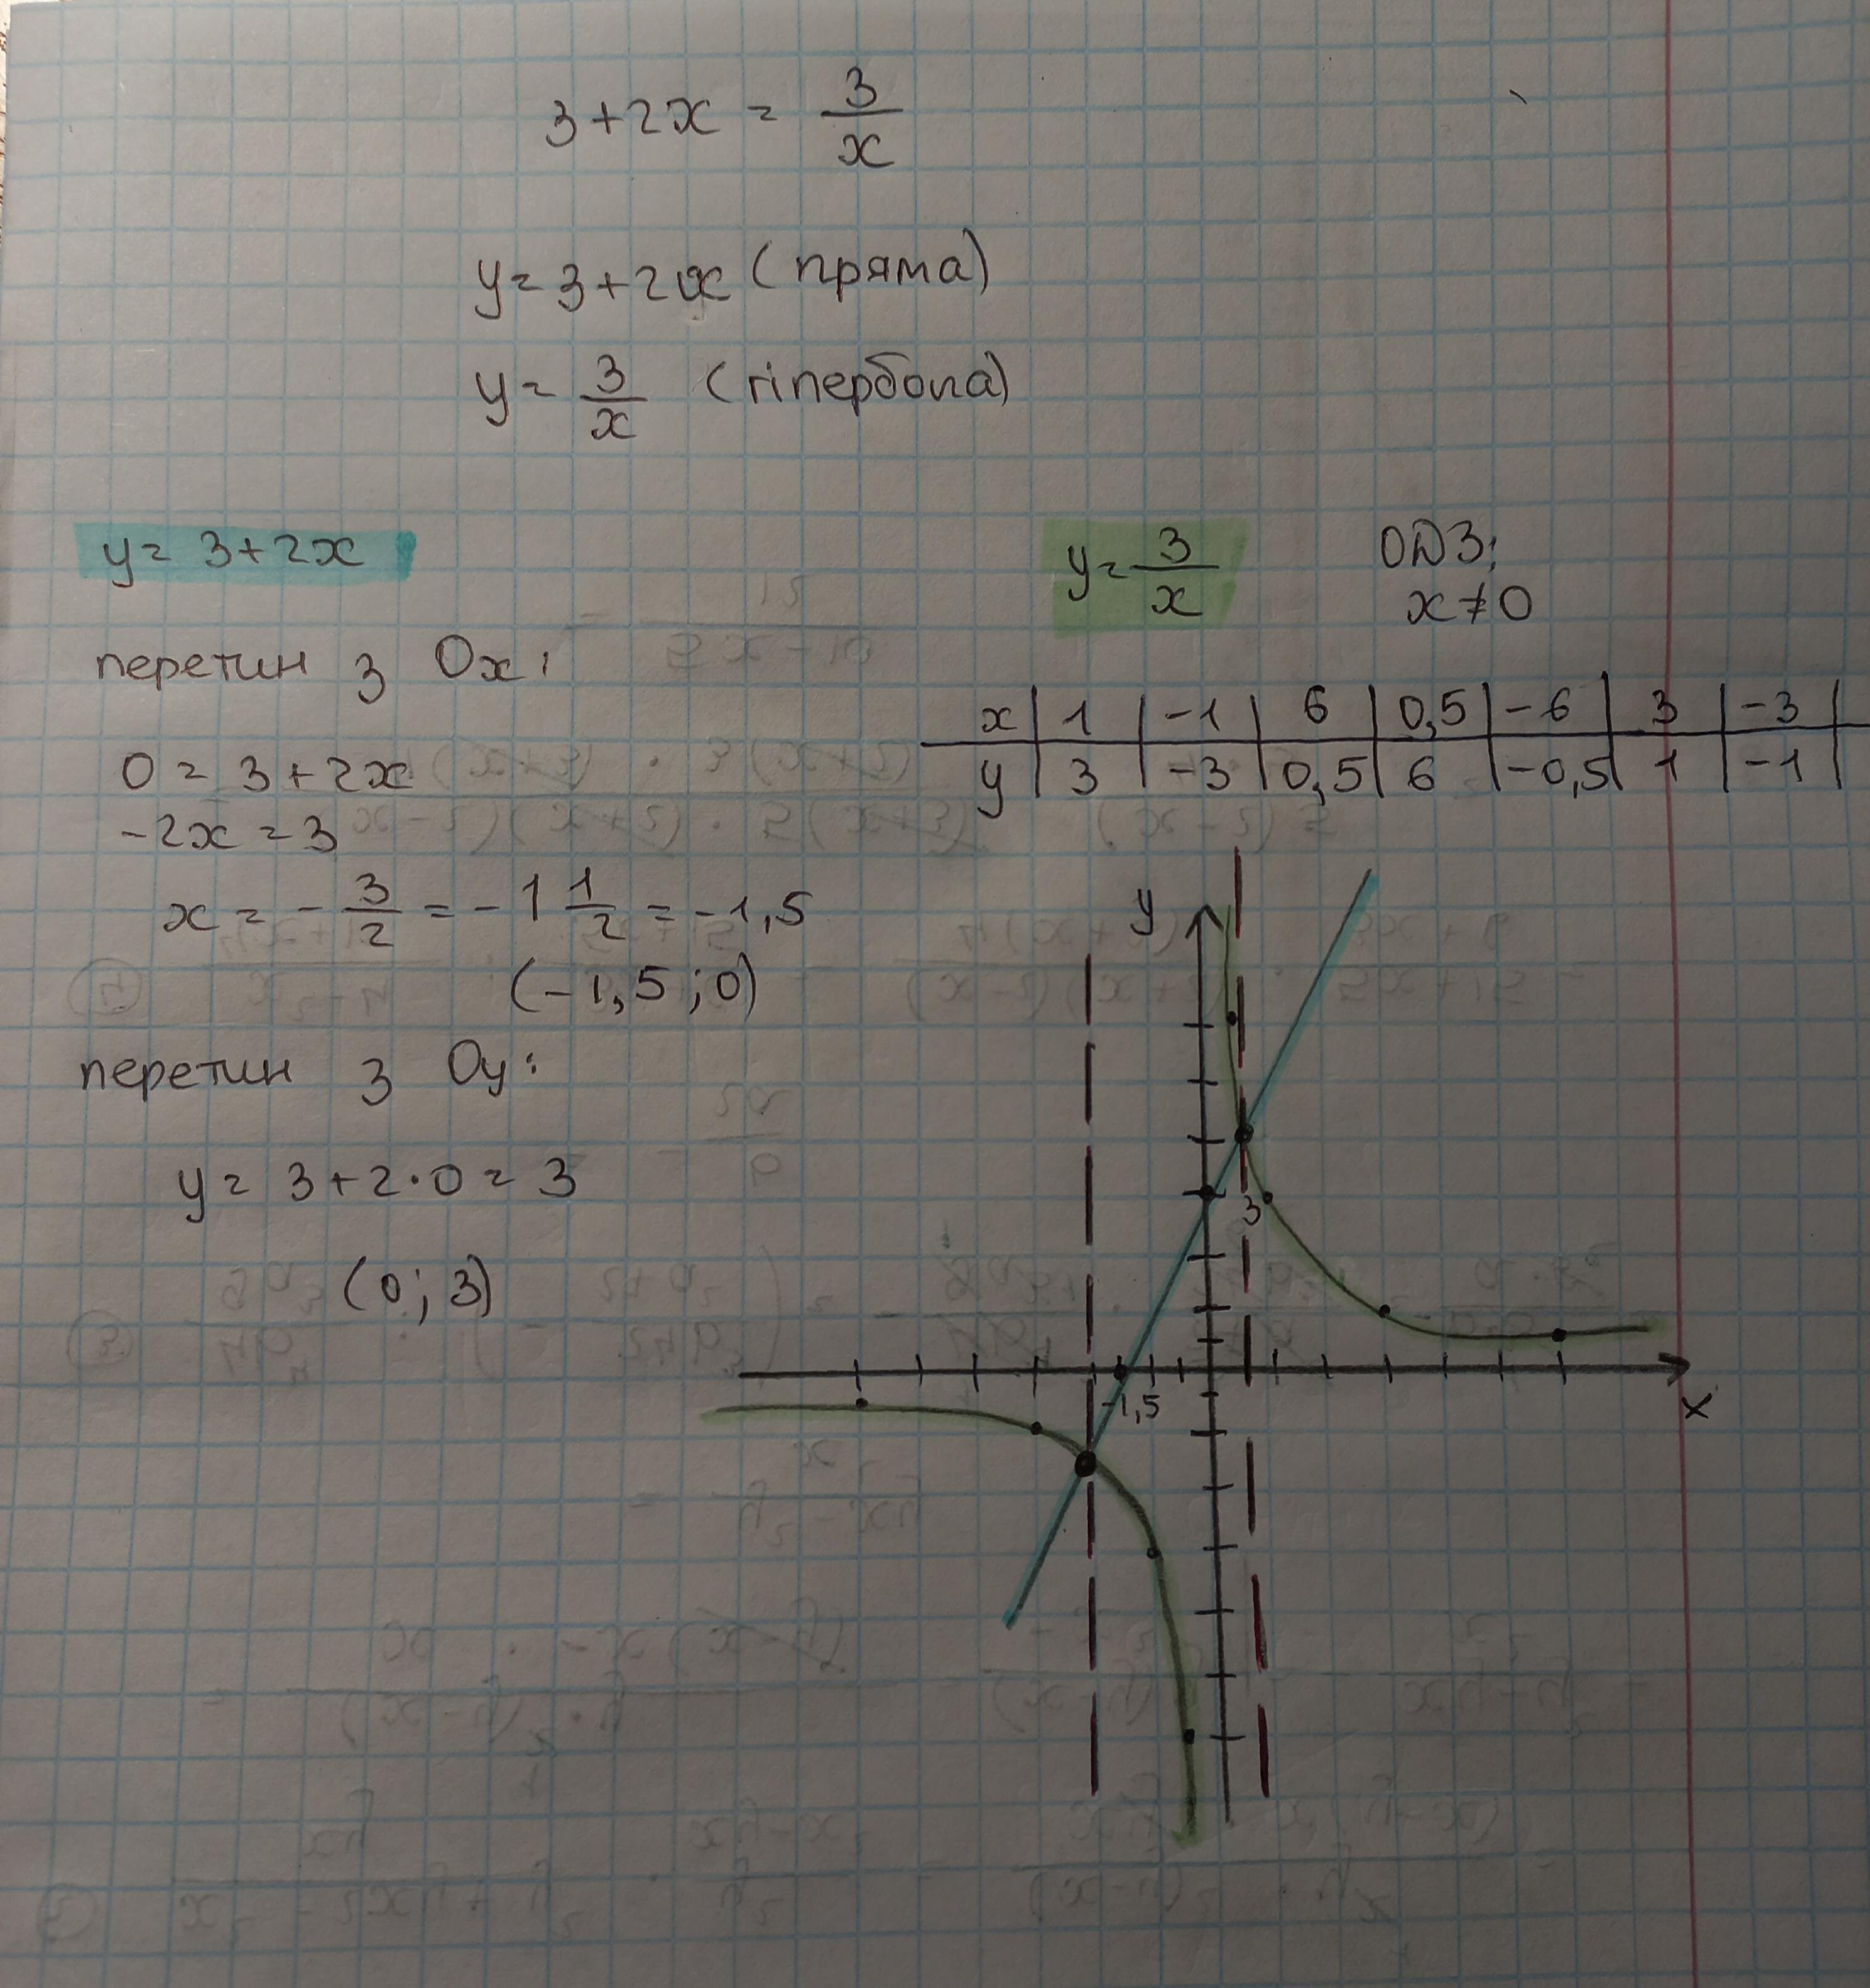 3+2x = 3/x
y = 3+2x (пряма)
y = 3/x (гіпербола)
y = 3+2x
перетин з Ox:
0 = 3+2x
-2x = 3
x = - 3/2 = -1 1/2 = -1,5
(-1,5; 0)
перетин з Oy:
y = 3+2·0 = 3
(0; 3)
y = 3/x ОДЗ:
x ≠ 0
x | 1 | -1 | 6 | 0,5 | -6 | 3 | -3 |
y | 3 | -3 | 0,5 | 6 | -0,5 | 1 | -1 |
y
3
-1,5
x